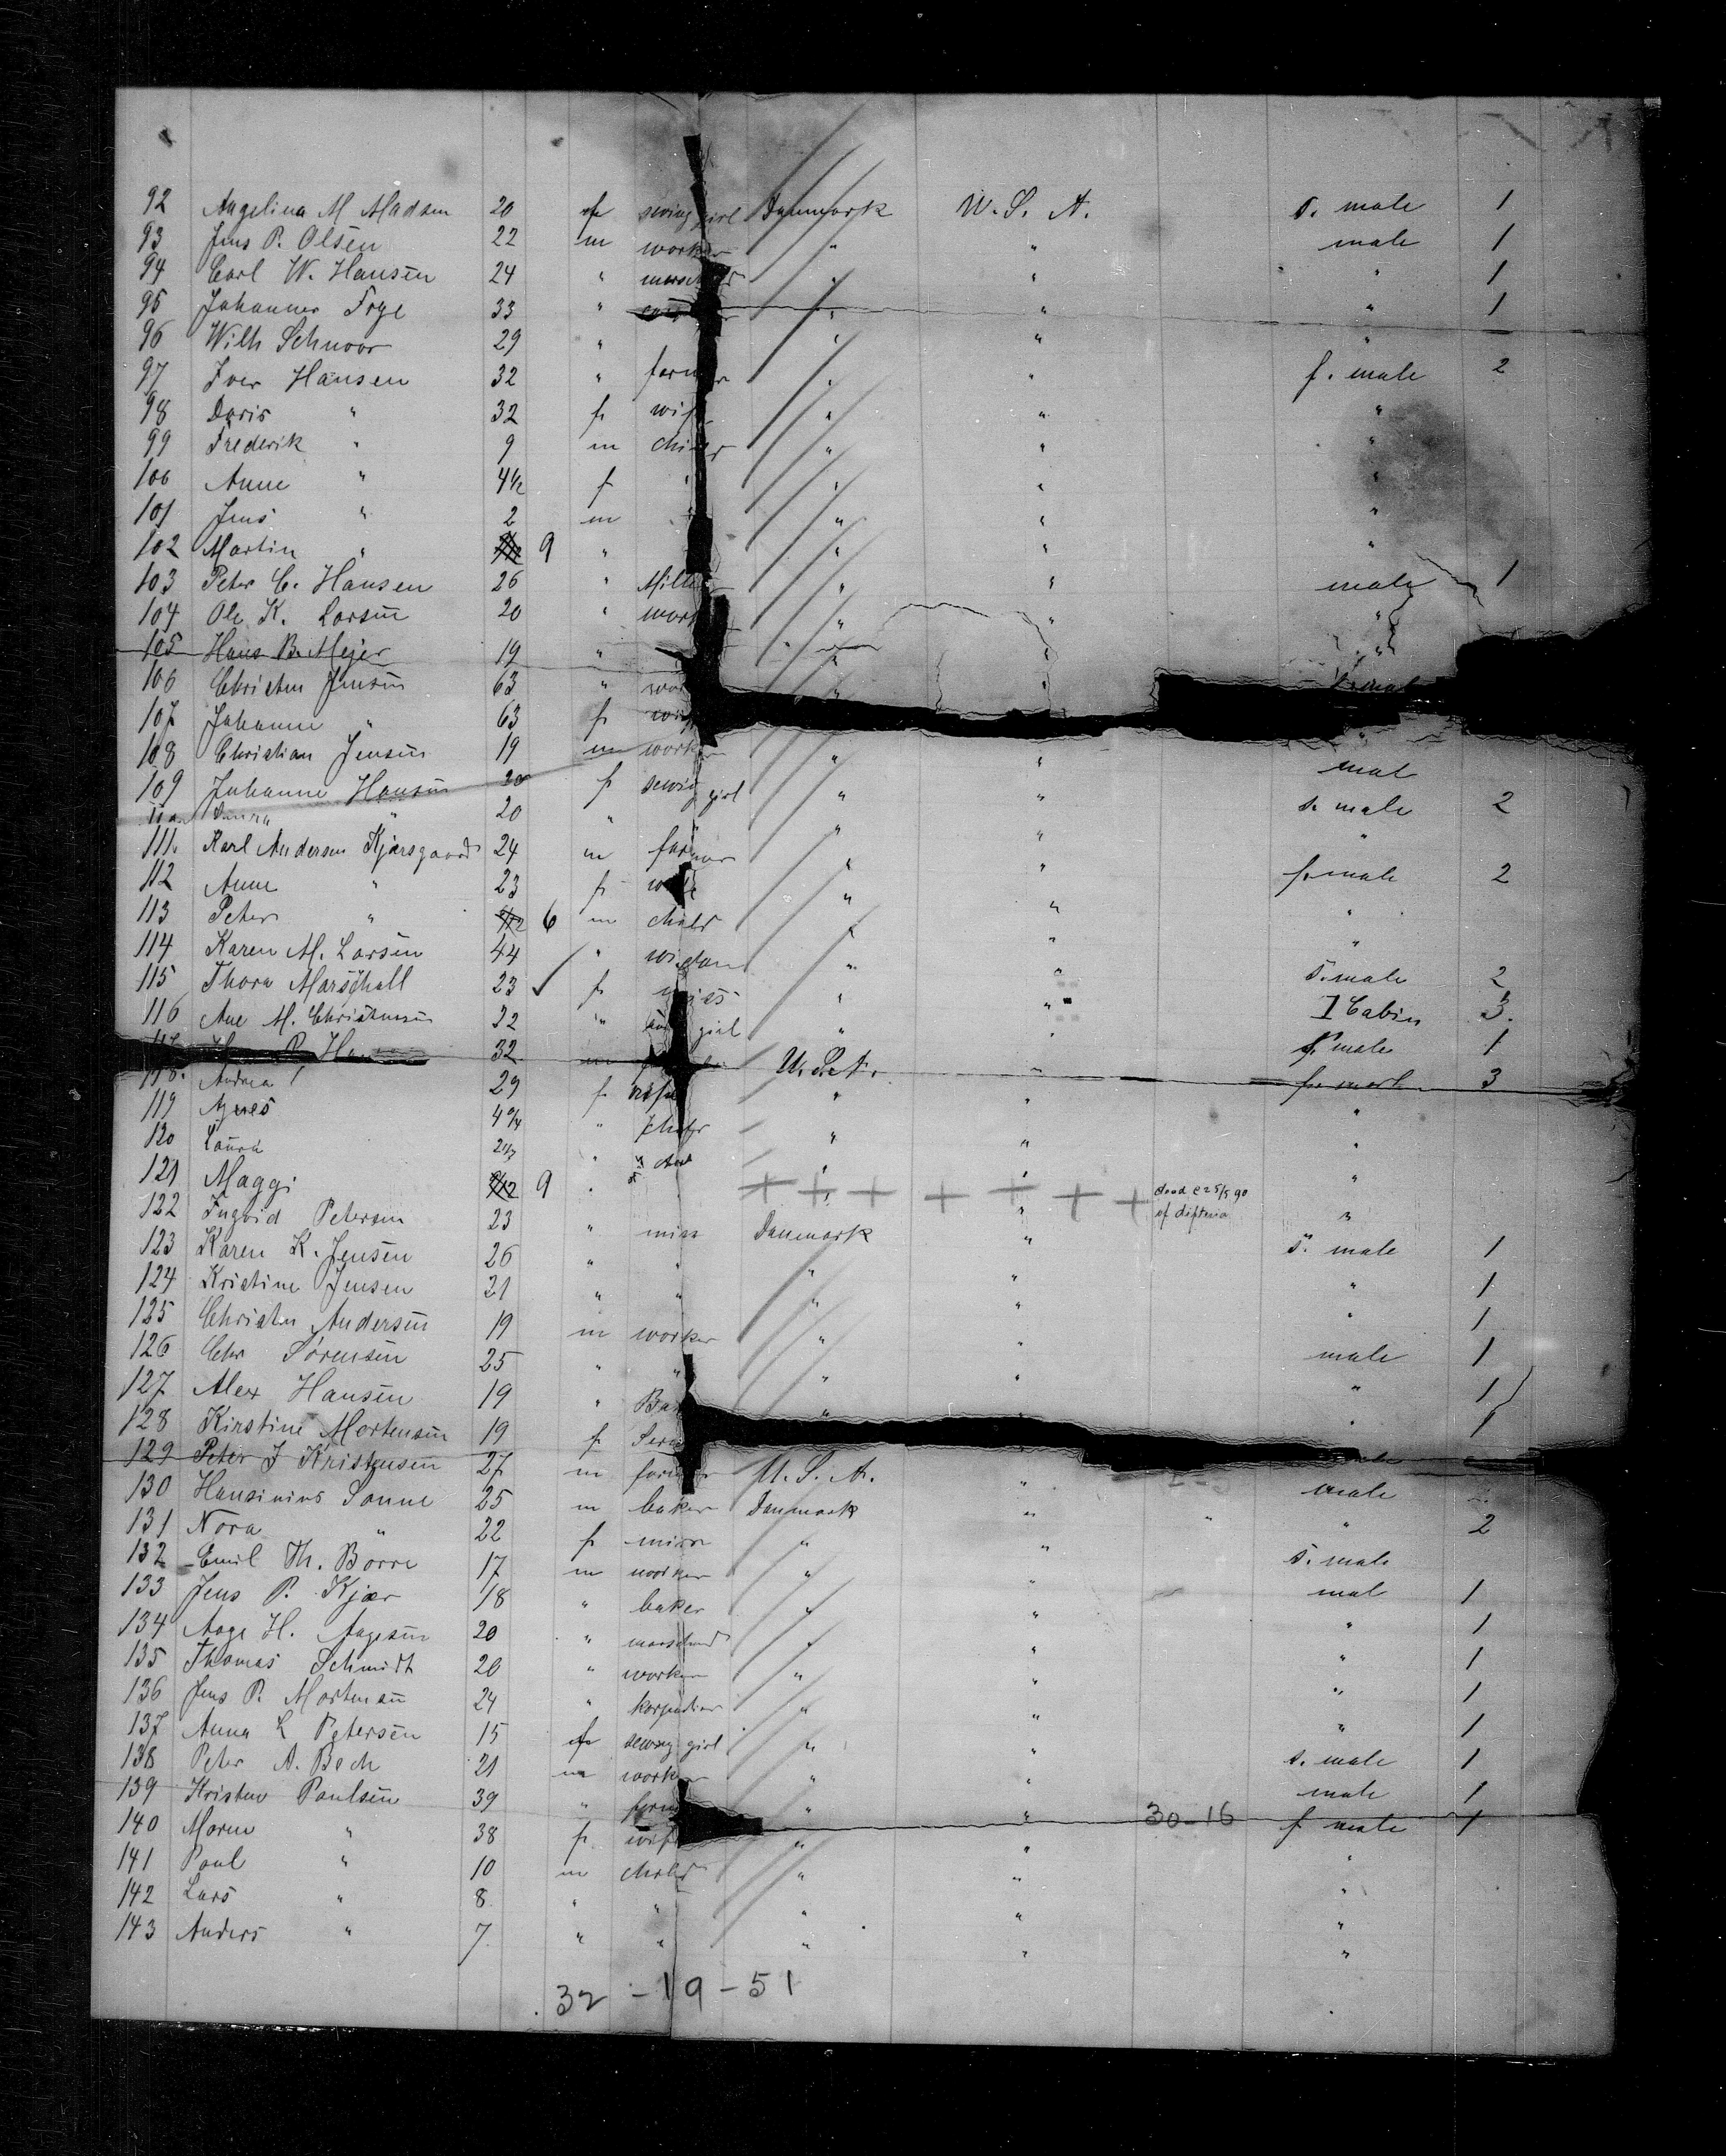 92 Angelina M Madsen 20 f sewing girl Danmark U. S. A. s. male 1
93 Jens P. Olsen 22 m worker " " male 1
94 Carl W. Hansen 24 " " " " 1
95 Johannes Frye 33 " " " " 1
96 Wilh Schnoor 29 " " " "
97 Iver Hansen 32 " farmer " " f. male 2
98 Doris " 32 f wife " " "
99 Frederik " 9 m child " " "
100 Anne " 4 1/2 f " " " "
101 Jens " 2 m " " "
102 Martin " 9 " " " "
103 Peter C. Hansen 26 " Miller " " male 1
104 Ole K. Larsen 20 " work " " "
105 Hans B. Mejer 19 " " " "
106 Christen Jensen 63 " wor " "
107 Johanne " 63 f wife "
108 Christian Jensen 19 m worker " " mal
109 Johanne Hansen 20 f sewing girl " " s. male 2
20 " " " " "
111. Karl Andersen Kjærsgaard 24 m farmer " " f. male 2
112 Anne " 23 f wife " " "
113 Peter " 6 m child " " "
114 Karen M. Larsen 44 " widow " " s. male 2
115 Thora Marschall 23 f miss " " I Cabin 3.
116 Ane M. Christensen 22 " girl " " s. male 1
32 m U. S. A. " f. male 3
118. Andrea 29 f wife " " "
119 Agnes 4 " child " " "
120 Laura " " " "
121 Maggi 9 " " " dead 25/5 90 "
of difteria
122 Ingvid Petersen 23 " miss Danmark " s. male 1
123 Karen K. Jensen 26 " " " " " 1
124 Kristine Jensen 21 " " " " " 1
125 Christen Andersen 19 m worker " " male 1
126 Chr Sørensen 25 " " " " " 1
127 Alex Hansen 19 " " " 1
128 Kirstine Mortensen 19 f
129 Peter J Kristensen 27 m farmer U. S. A. " male
130 Hansinius Sonne 25 m baker Danmark " " " 2
131 Nora " 22 f miss " " s. male
132 Emil Th. Borre 17 m worker " " mal 1
133 Jens P. Kjær 18 " baker " " " 1
134 Aage H. Aagesen 20 " " " " 1
135 Thomas Schmidt 20 " worker " " " 1
136 Jens P. Mortensen 24 " " " " 1
137 Anna L Petersen 15 f sewing girl " " s. male 1
138 Peter A. Bech 21 m worker " " male 1
139 Kristen Paulsen 39 " farm " " 30-16 f male 1
140 Maren " 38 f wife " " "
141 Paul " 10 m child " " "
142 Lars " 8 " " " " "
143 Anders " 7 " " " " "
32 - 19 - 51